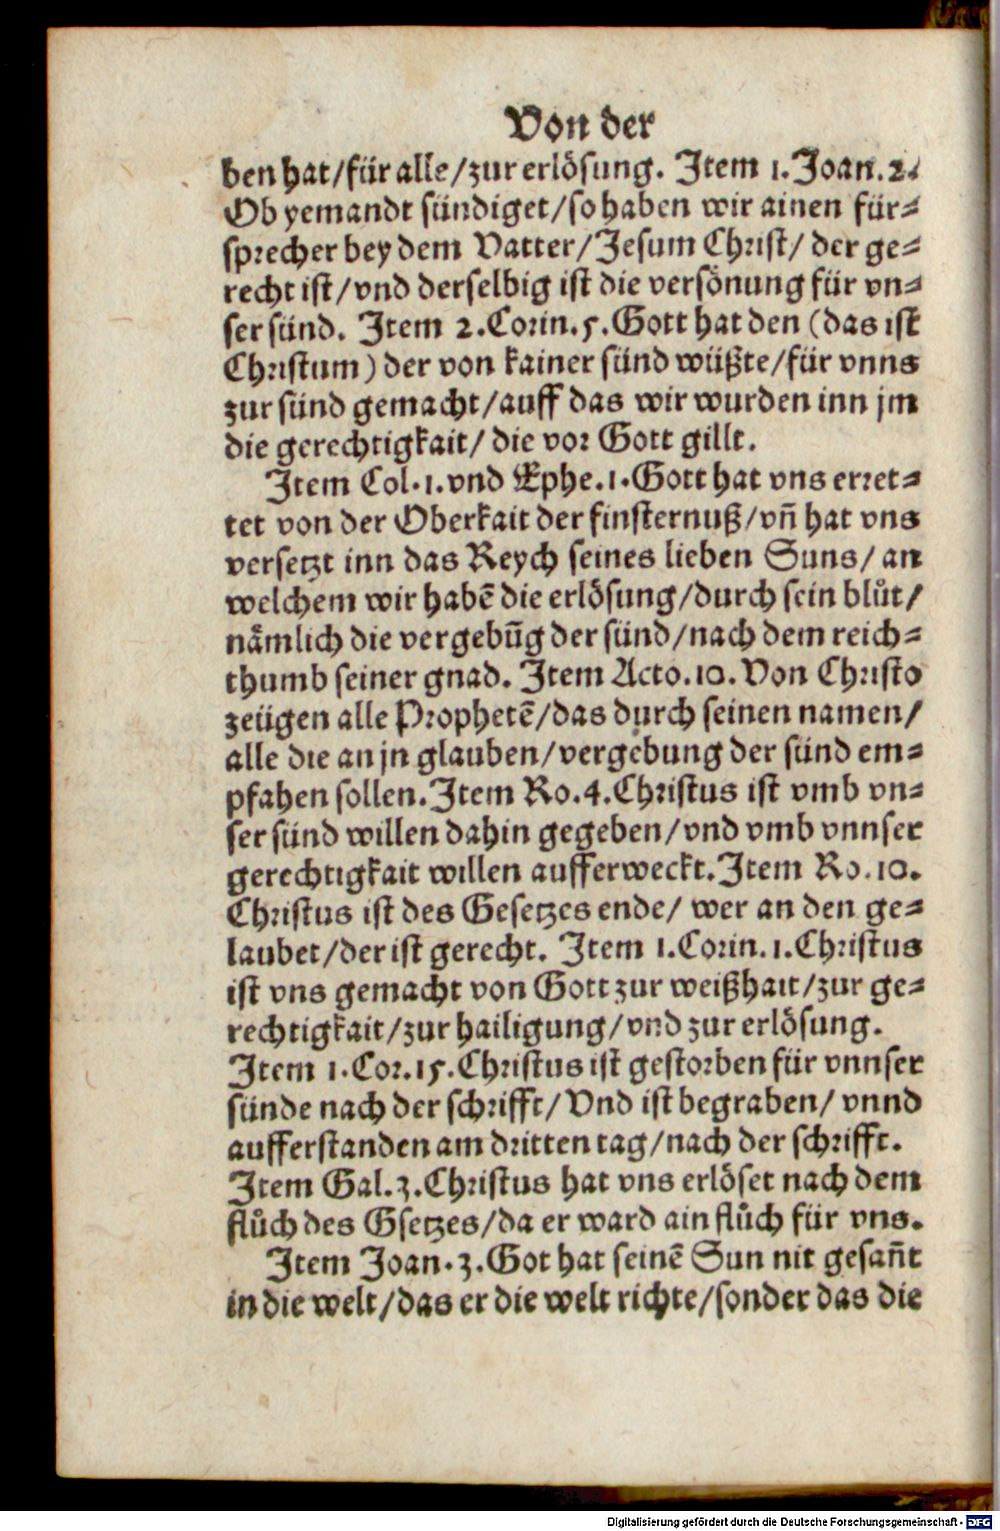 Von der
ben hat/für alle/zur erlösung. Item 1. Joan. 2.
Ob yemandt sündiget/so haben wir ainen für⸗
sprecher bey dem Vatter/Jesum Christ/ der ge⸗
recht ist/vnd derselbig ist die versönung für vn⸗
ser sünd. Item 2. Corin. 5. Gott hat den (das ist
Christum) der von kainer sünd wüßte/für vnns
zur sünd gemacht/auff das wir wurden inn jm
die gerechtigkait/ die vor Gott gillt.
Item Col. 1. vnd Ephe. 1. Gott hat vns erret⸗
tet von der Oberkait der finsternuß/vñ hat vns
versetzt inn das Reych seines lieben Suns/ an
welchem wir habē die erlösung/durch sein blůt/
nämlich die vergebūg der sünd/nach dem reich⸗
thumb seiner gnad. Item Acto. 10. Von Christo
zeügen alle Prophetē/das durch seinen namen/
alle die an jn glauben/vergebung der sünd em⸗
pfahen sollen. Item Ro. 4. Christus ist vmb vn⸗
ser sünd willen dahin gegeben/vnd vmb vnnser
gerechtigkait willen aufferweckt. Item Ro. 10.
Christus ist des Gesetzes ende/ wer an den ge⸗
laubet/der ist gerecht. Item 1. Corin. 1. Christus
ist vns gemacht von Gott zur weißhait/zur ge⸗
rechtigkait/zur hailigung/vnd zur erlösung.
Item 1. Cor. 15. Christus ist gestorben für vnnser
sünde nach der schrifft/ Vnd ist begraben/ vnnd
aufferstanden am dritten tag/nach der schrifft.
Item Gal. 3. Christus hat vns erlöset nach dem
flůch des Gsetzes/da er ward ain flůch für vns.
Item Joan. 3. Got hat seinē Sun nit gesañt
in die welt/das er die welt richte/sonder das die
Digitalisierung gefördert durch die Deutsche Forschungsgemeinschaft - DFG